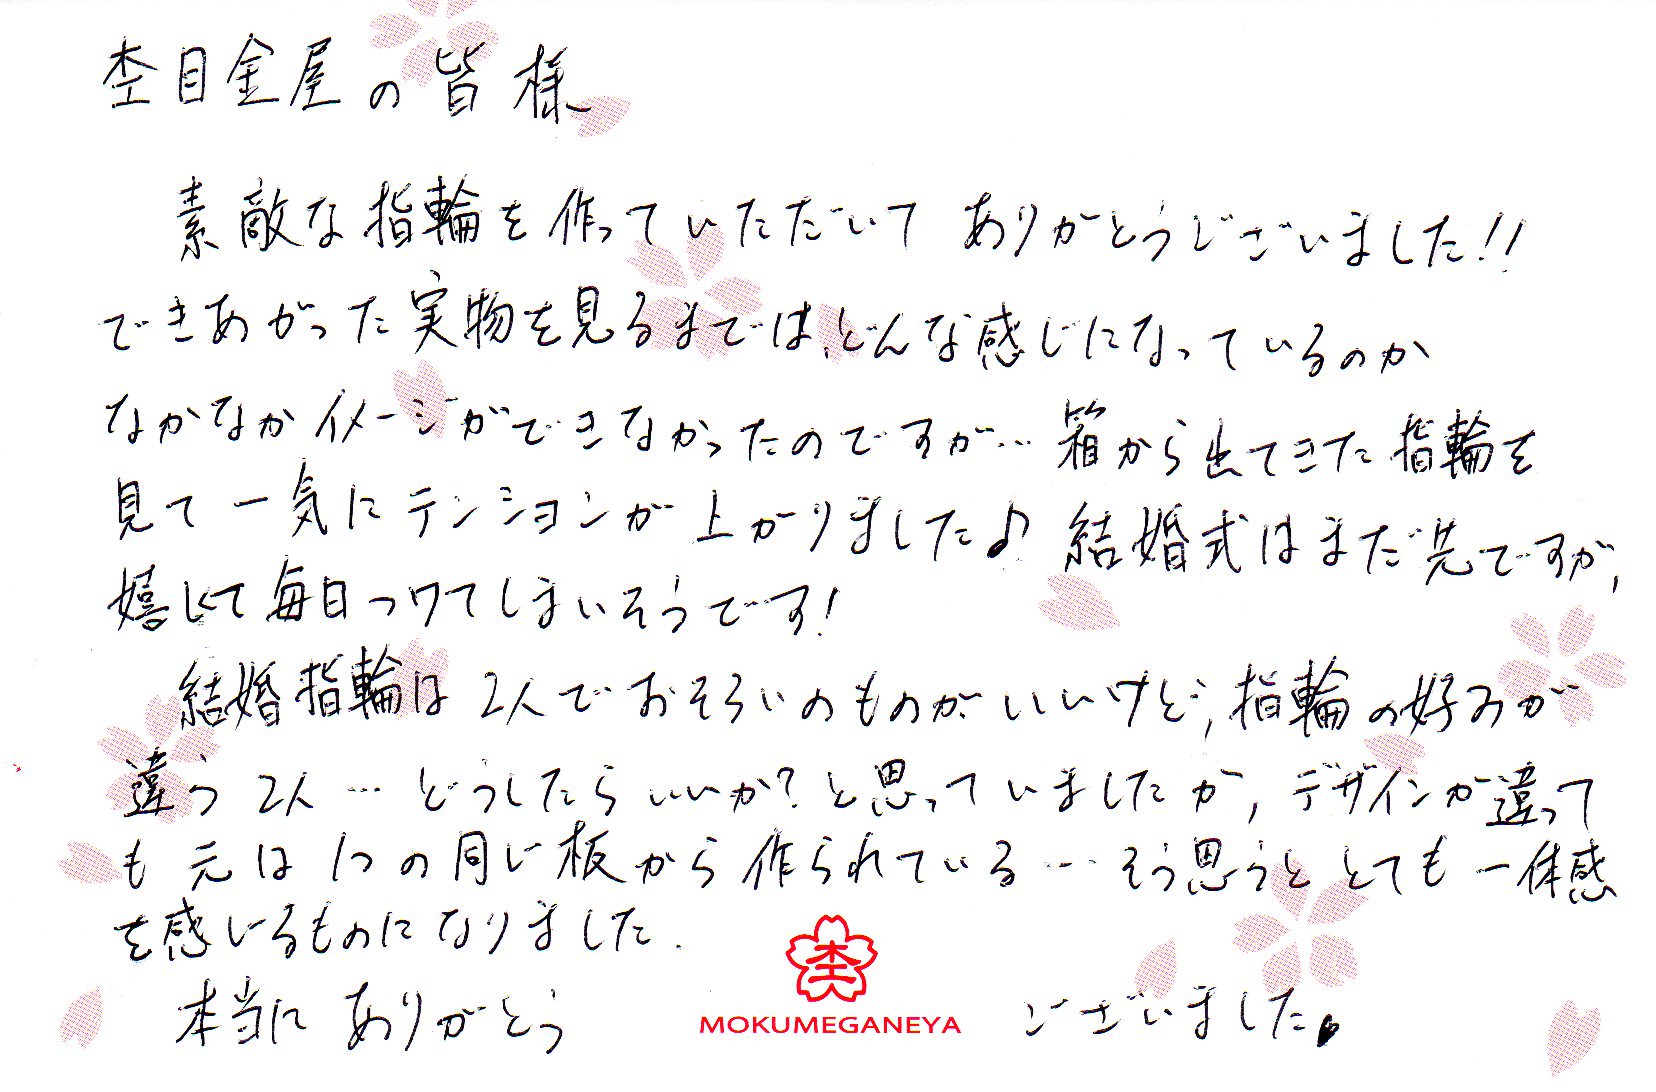 杢目金屋の皆様
素敵な指輪を作っていただいて ありがとうございました!!
できあがった実物を見るまでは、どんな感じになっているのか
なかなかイメージができなかったのですが… 箱から出てきた指輪を
見て一気にテンションが上がりました♪ 結婚式はまだ先ですが、
嬉しくて毎日つけてしまいそうです!
結婚指輪は2人でおそろいのものがいいけど、指輪の好みが
違う2人…どうしたらいいか?と思っていましたが、デザインが違って
も元は1つの同じ板から作られている…そう思うととても一体感
を感じるものになりました.
本当にありがとう ございました。
杢
MOKUMEGANEYA